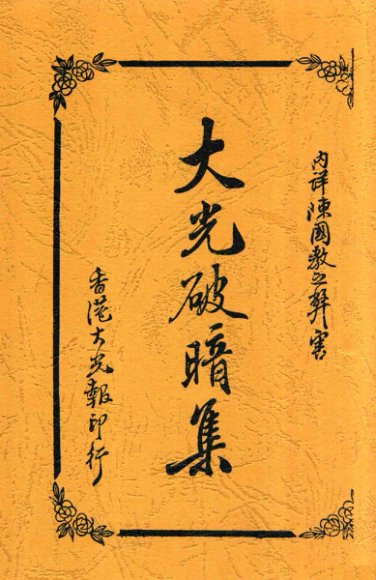 內详陳國教之弊害
大光破暗集
香港大光報印行